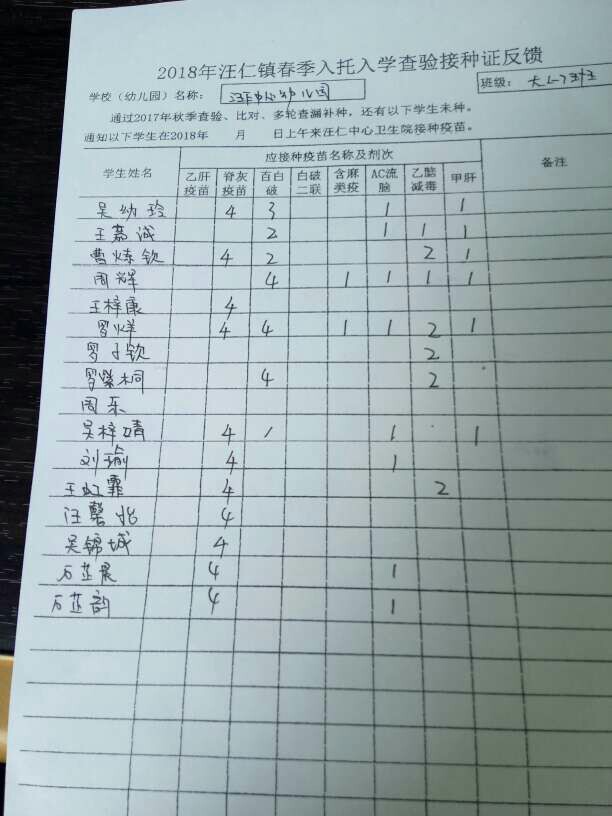 2018年汪仁镇春季入托入学查验接种证反馈
学校（幼儿园）名称： 幼儿园 班级： 大(一)班
通过2017年秋季查验、比对、多轮查漏补种，还有以下学生未种。
通知以下学生在2018年 月 日上午来汪仁中心卫生院接种疫苗。
学生姓名 应接种疫苗名称及剂次 备注
乙肝疫苗 脊灰疫苗 百白破 白破二联 含麻类疫 AC流脑 乙脑减毒 甲肝
吴幼玲 4 3 1 1
王嘉诚 2 1 1 1
曹炼钦 4 2 2 1
周辉 4 1 1 1 1
王梓康 4
罗烊 4 4 1 1 2 1
罗子钦 2
罗紫桐 4 2
周乐
吴梓婧 4 1 1 1
刘瑜 4 1
王虹霏 4 2
汪馨 4
吴锦城 4
万芷晨 4 1
万芷韵 4 1